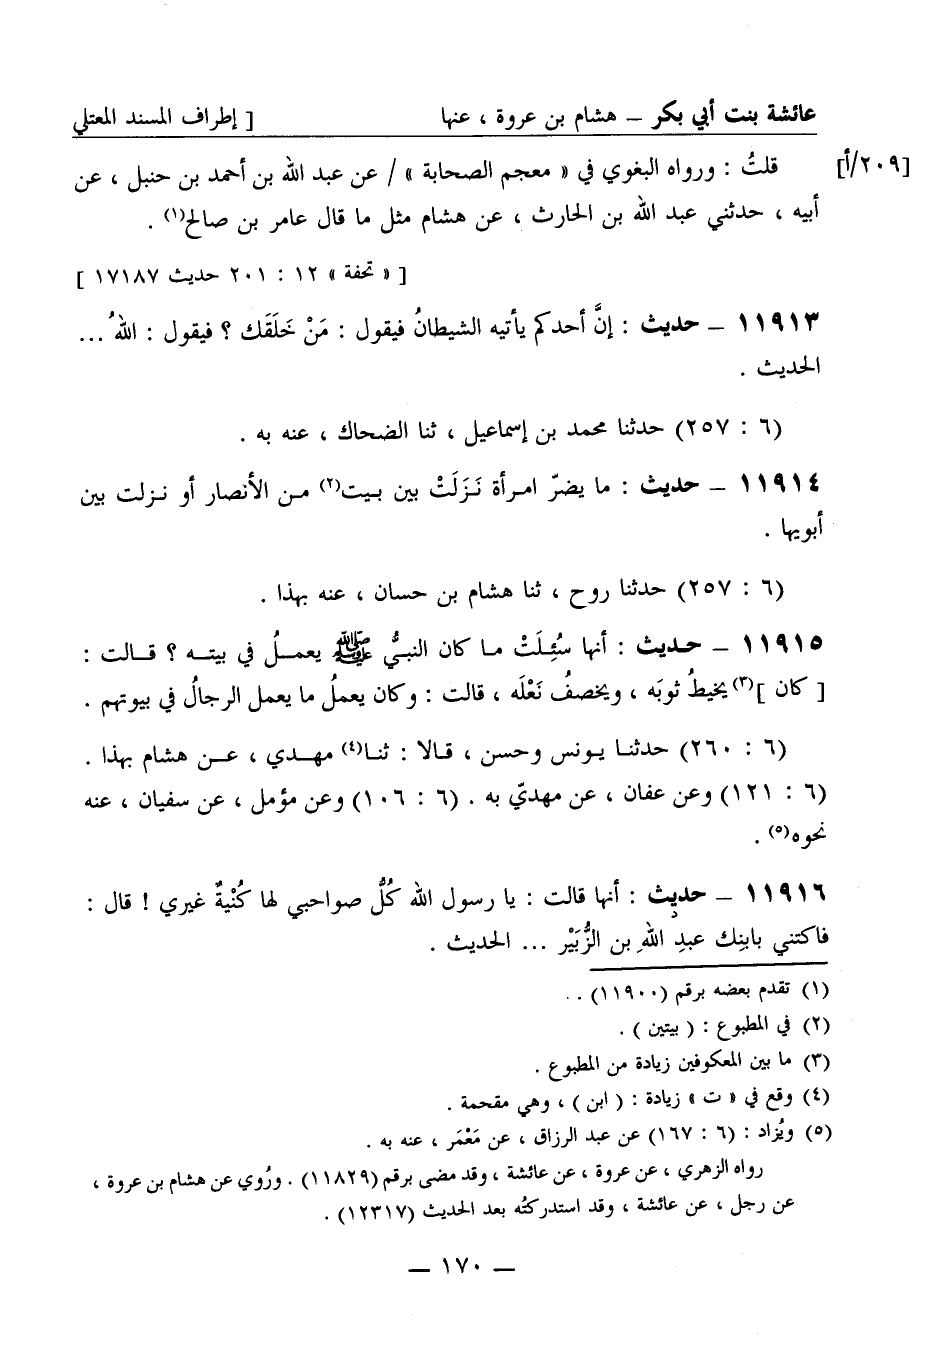 عائشة بنت أبي بكر – هشام بن عروة ، عنها [ إطراف المسند المعتلي
[٢٠٩/أ] قلتُ : ورواه البغوي في « معجم الصحابة » / عن عبد الله بن أحمد بن حنبل ، عن
أبيه ، حدثني عبد الله بن الحارث ، عن هشام مثل ما قال عامر بن صالح(١) .
[ « تحفة » ١٢ : ٢٠١ حديث ١٧١٨٧ ]
١١٩١٣ – حديث : إنَّ أحدكم يأتيه الشيطانُ فيقول : مَنْ خَلَقَك ؟ فيقول : اللهُ ...
الحديث .
(٦ : ٢٥٧) حدثنا محمد بن إسماعيل ، ثنا الضحاك ، عنه به .
١١٩١٤ – حديث : ما يضرّ امرأة نَزَلَتْ بين بيت(٢) من الأنصار أو نزلت بين
أبويها .
(٦ : ٢٥٧) حدثنا روح ، ثنا هشام بن حسان ، عنه بهذا .
١١٩١٥ – حديث : أنها سُئِلَتْ ما كان النبيُّ ﷺ يعملُ في بيته ؟ قالت :
[ كان ](٣) يخيطُ ثوبَه ، ويخصفُ نَعْلَه ، قالت : وكان يعملُ ما يعمل الرجالُ في بيوتهم .
(٦ : ٢٦٠) حدثنا يونس وحسن ، قالا : ثنا(٤) مهدي ، عن هشام بهذا .
(٦ : ١٢١) وعن عفان ، عن مهديّ به . (٦ : ١٠٦) وعن مؤمل ، عن سفيان ، عنه
نحوه(٥) .
١١٩١٦ – حديث : أنها قالت : يا رسول الله كُلُّ صواحبي لها كُنْيةٌ غيري ! قال :
فاكتني بابنِك عبدِ اللهِ بن الزُّبَيْر ... الحديث .
(١) تقدم بعضه برقم (١١٩٠٠) . .
(٢) في المطبوع : ( بيتين ) .
(٣) ما بين المعكوفين زيادة من المطبوع .
(٤) وقع في « ت » زيادة : ( ابن ) ، وهي مقحمة .
(٥) ويُزاد : (٦ : ١٦٧) عن عبد الرزاق ، عن مَعْمَر ، عنه به .
رواه الزهري ، عن عروة ، عن عائشة ، وقد مضى برقم (١١٨٢٩) . ورُوي عن هشام بن عروة ،
عن رجل ، عن عائشة ، وقد استدركتُه بعد الحديث (١٢٣١٧) .
– ١٧٠ –